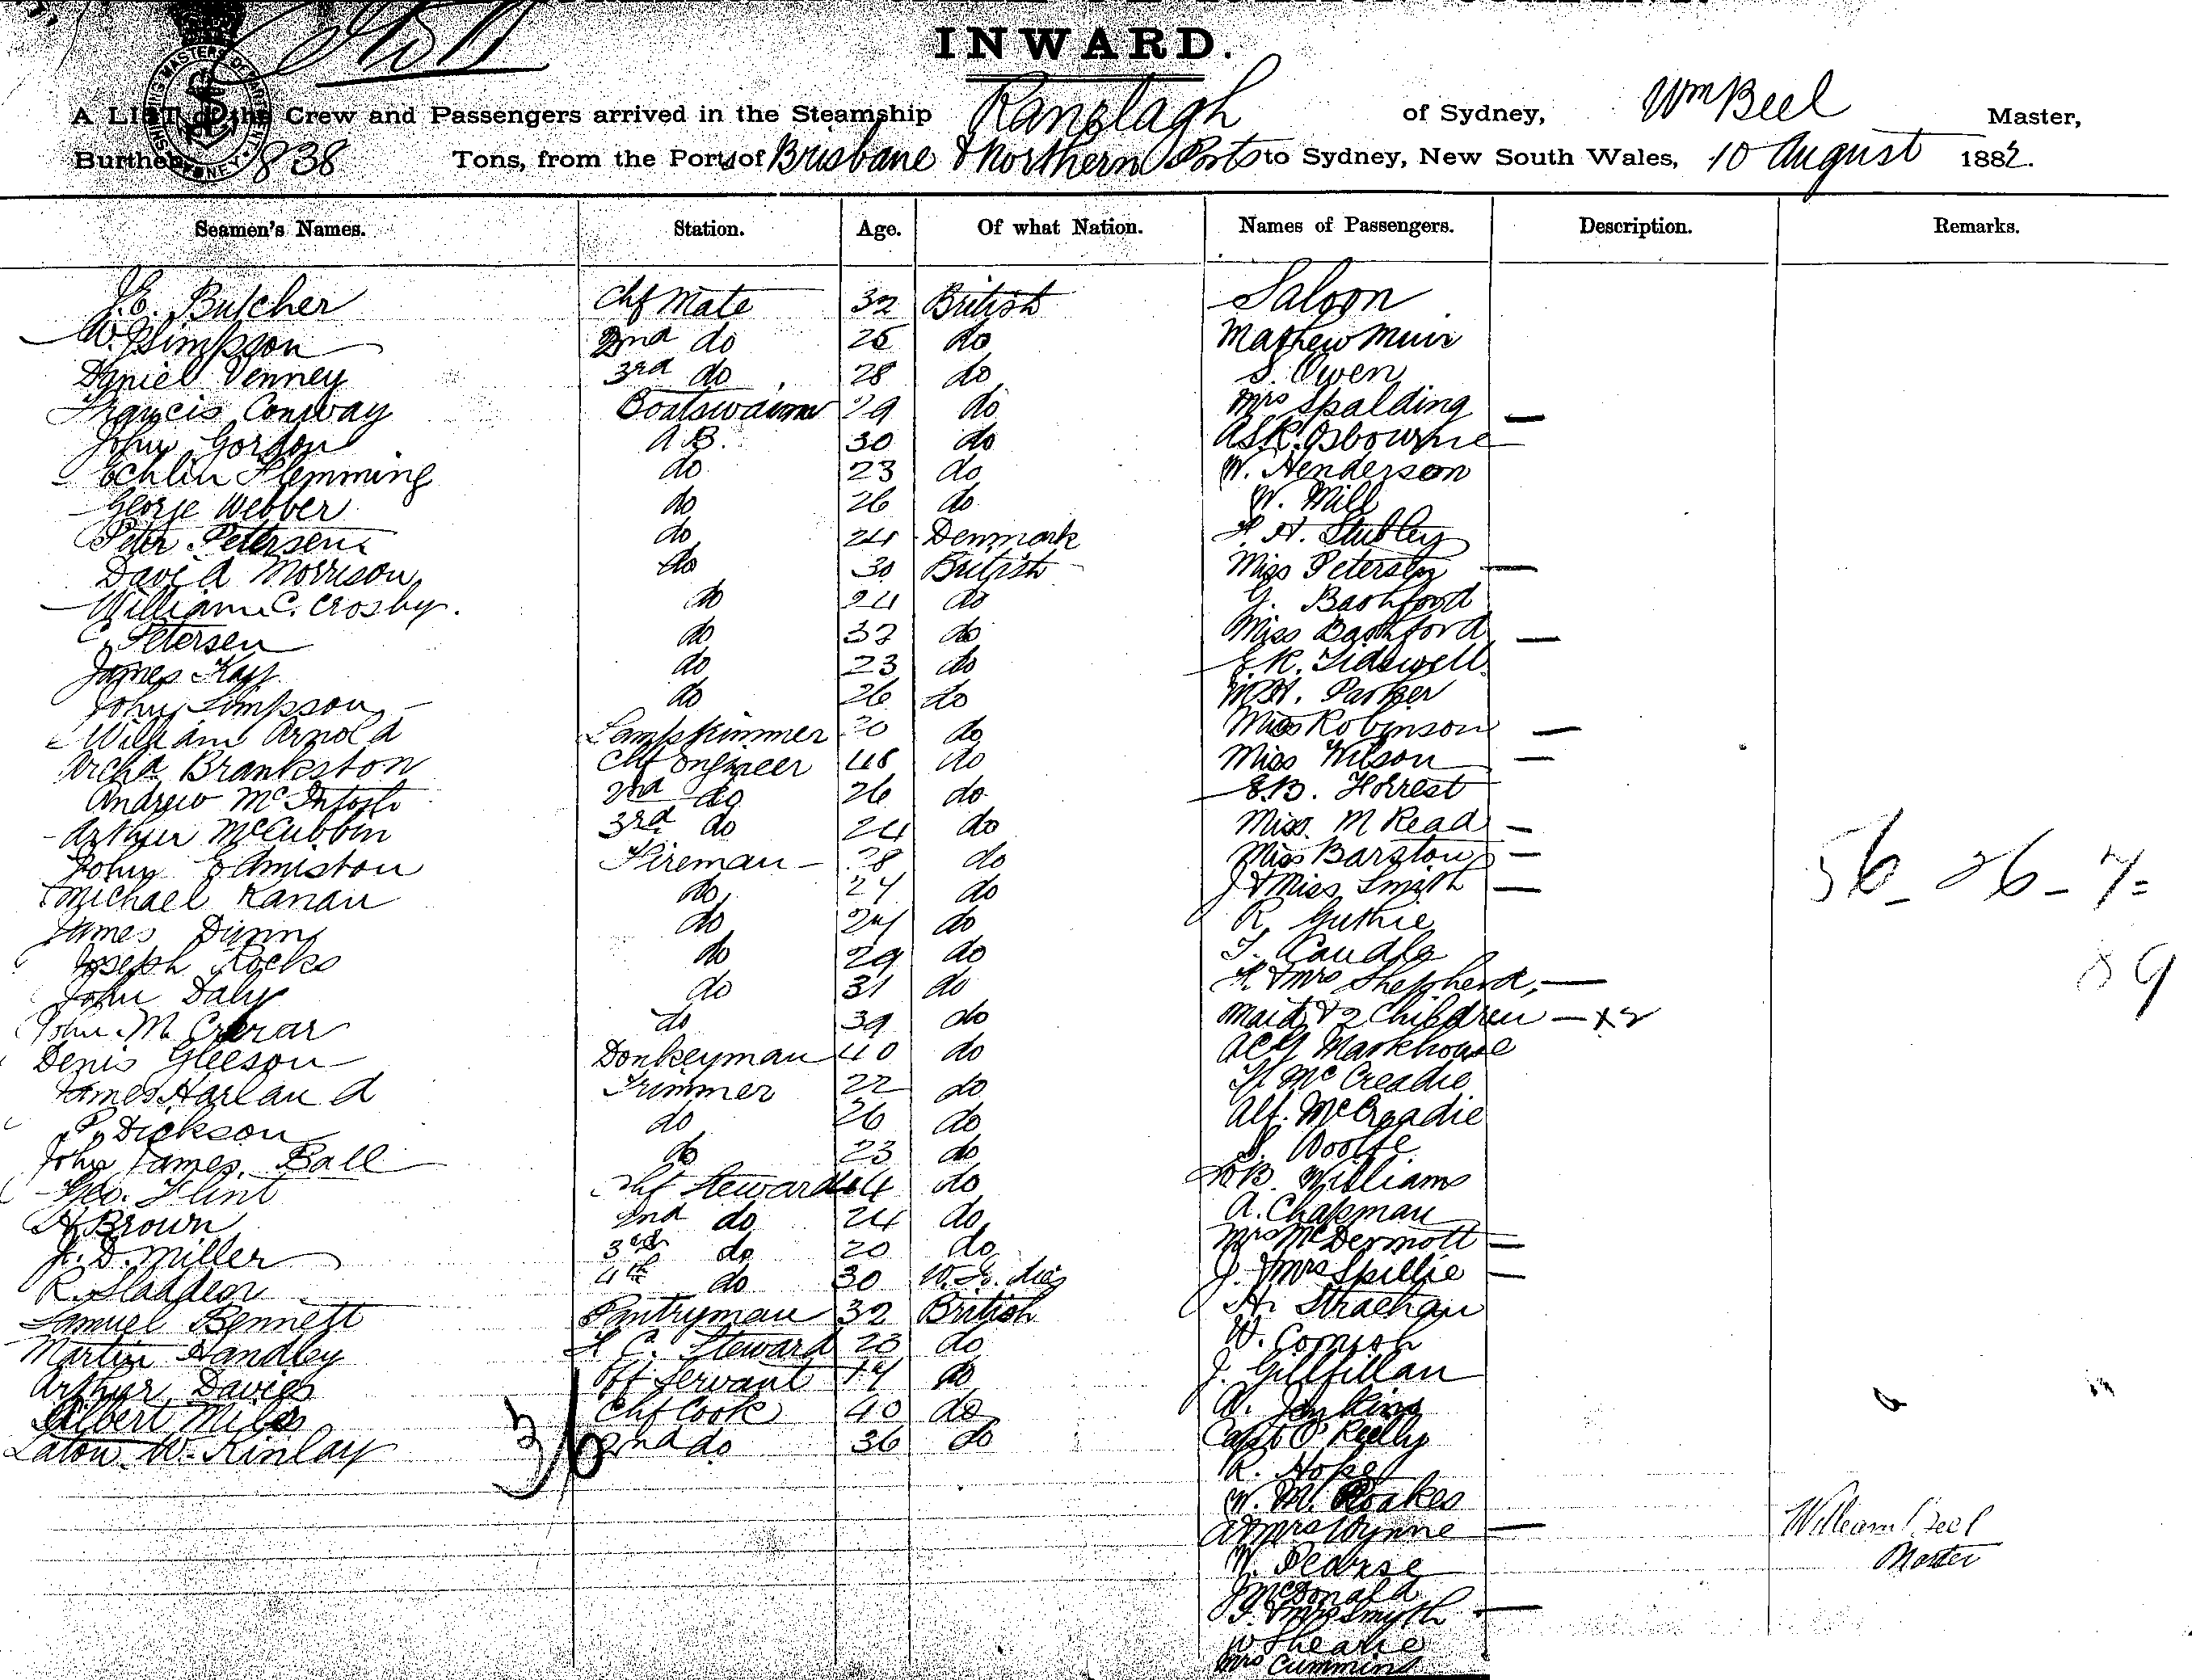 INWARD.
A LIST of the Crew and Passengers arrived in the Steamship Ranelagh of Sydney, Wm Beel Master,
Burthen 838 Tons, from the Ports of Brisbane & Northern Ports to Sydney, New South Wales, 10 August 1882.
Seamen's Names. Station. Age. Of what Nation. Names of Passengers. Description. Remarks.
J.E. Butcher Chf Mate 32 British Saloon
W Simpson 2nd do 25 do Mathew Muir
Daniel Venney 3rd do 28 do S. Owen
Francis Conway Boatswain 29 do Mrs Spalding —
John Gordon A.B. 30 do A S R. Osbourne
Echlin Flemming do 23 do W. Henderson
George Webber do 26 do W. Mill
Peter Petersen do 24 Denmark F. H. Stubley
David Morrison do 30 British Miss Petersen —
William C. Crosby. do 24 do G. Bashford
C. Petersen do 32 do Miss Bashford —
James Kay do 23 do E.R. Tidswell
John Simpson do 26 do W.H. Parker
William Arnold Lamptrimmer 20 do Miss Robinson —
Archd Brankston Chf Engineer 48 do Miss Wilson —
Andrew McIntosh 2nd do 26 do E.B. Forrest
Arthur McCubbin 3rd do 24 do Miss. M Read —
John Edmiston Fireman 28 do Miss Barstow —
Michael Kanau do 24 do J & Miss Smith — 56 - 26 - 7 =
James Dunn do 24 do R. Guthrie
Joseph Rocks do 29 do T. Caudle 89
John Daly do 31 do F. & Mrs Shepherd, —
John McCrerar do 39 do Maid & 2 Children — x 2
Denis Gleeson Donkeyman 40 do ACY Markhouse
James Harland Trimmer 22 do H. McCreadie
P. Dickson do 26 do Alf. McCreadie
John James. Ball do 23 do S. Woolfe
Geo. Flint Chf Steward 44 do B. Williams
H Brown 2nd do 24 do A. Chapman
J. D. Miller 3rd do 20 do Mrs McDermott —
R. Sladden 4th do 30 W. Indies J. & Mrs Spillie —
Samuel Bennett Pantryman 32 British H. Strachan
Martin Handley F. C. Steward 23 do W. Cornish
Arthur Davies Off Servant 17 do J. Gillfillan
Albert Miles Chf Cook 40 do A. Jenkins
Eaton W. Kinlay 36 2nd do 36 do Capt O'Reilly
R. Hope
W. M. Roakes
A & Mrs Wynne — William Beel
W. Pearse Master
J McDonald
T. & Mrs Smyth —
W Shearie
Mrs Cummins